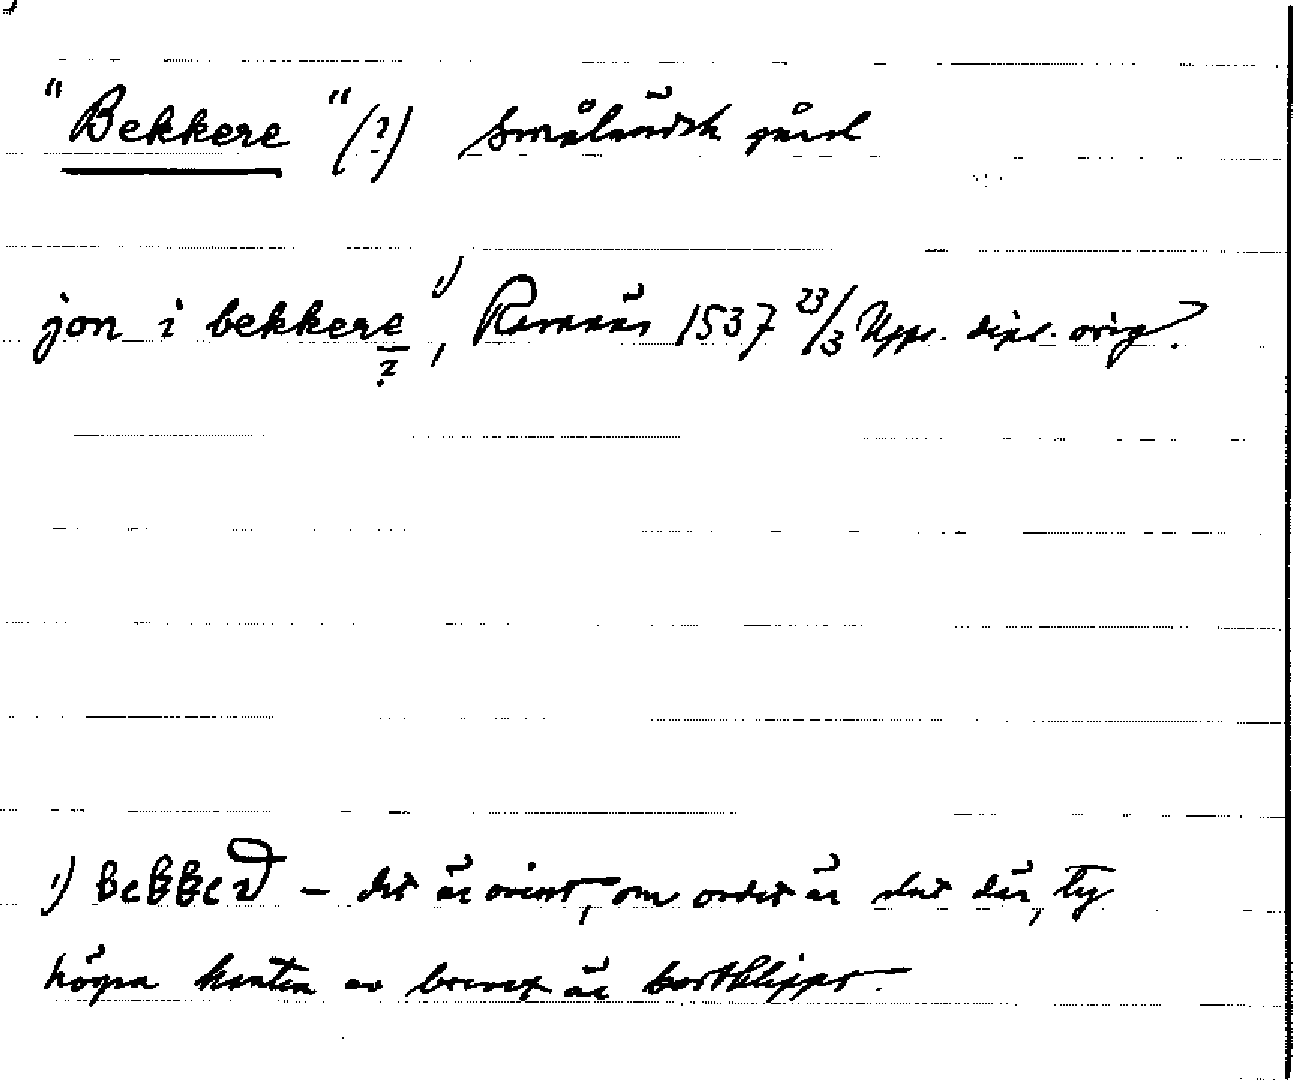 "Bekkere" (?) småländsk gård
jon i bekkere ¹), Ramnäs 1537 23/3 Upps. dipl. orig.
?
1) – det är ovisst, om ordet är slut där, ty
högra kanten av brevet är bortklippt.